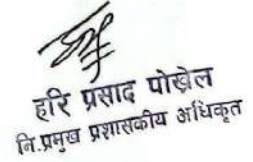 हरि प्रसाद पोखरेल
नि.प्रमुख प्रशासकीय अधिकृत